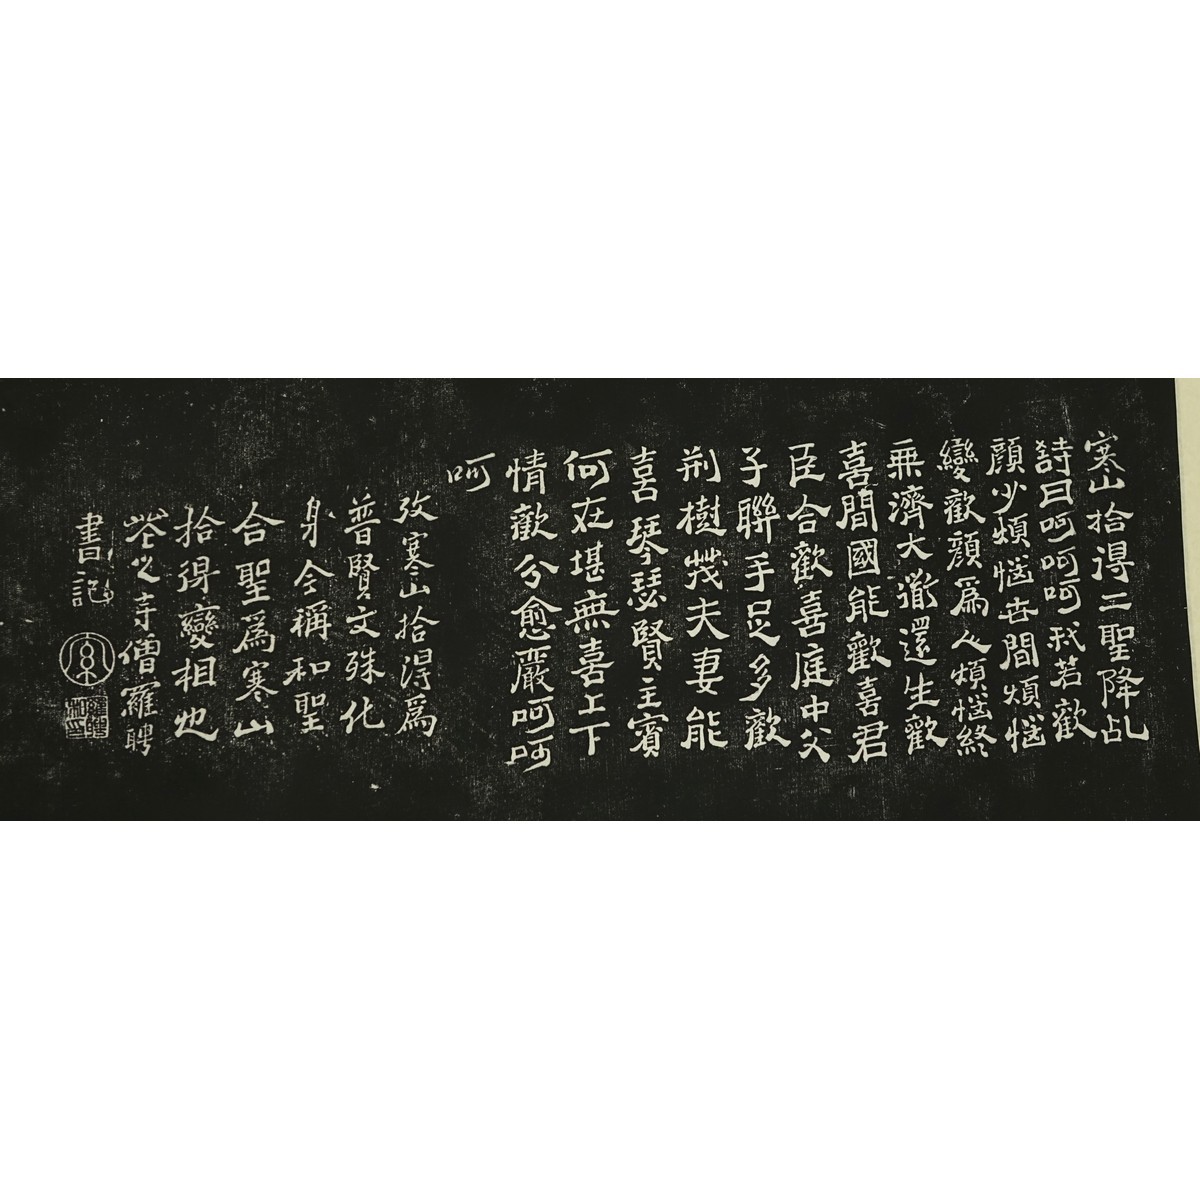 寒山拾得二聖降乩
詩曰呵呵呵我若歡
顔少煩惱世間煩惱
變歡顔爲人煩惱終
無濟大衜還生歡
喜間國能歡喜君
臣合歡喜庭中父
子聯手足多歡
荆樹茂夫妻能
喜琴瑟賢主賓
何在堪無喜上下
情歡分愈嚴呵呵
呵
攷寒山拾得爲
普賢文殊化
身今稱和聖
合聖爲寒山
拾得變相也
花之寺僧羅聘
書記